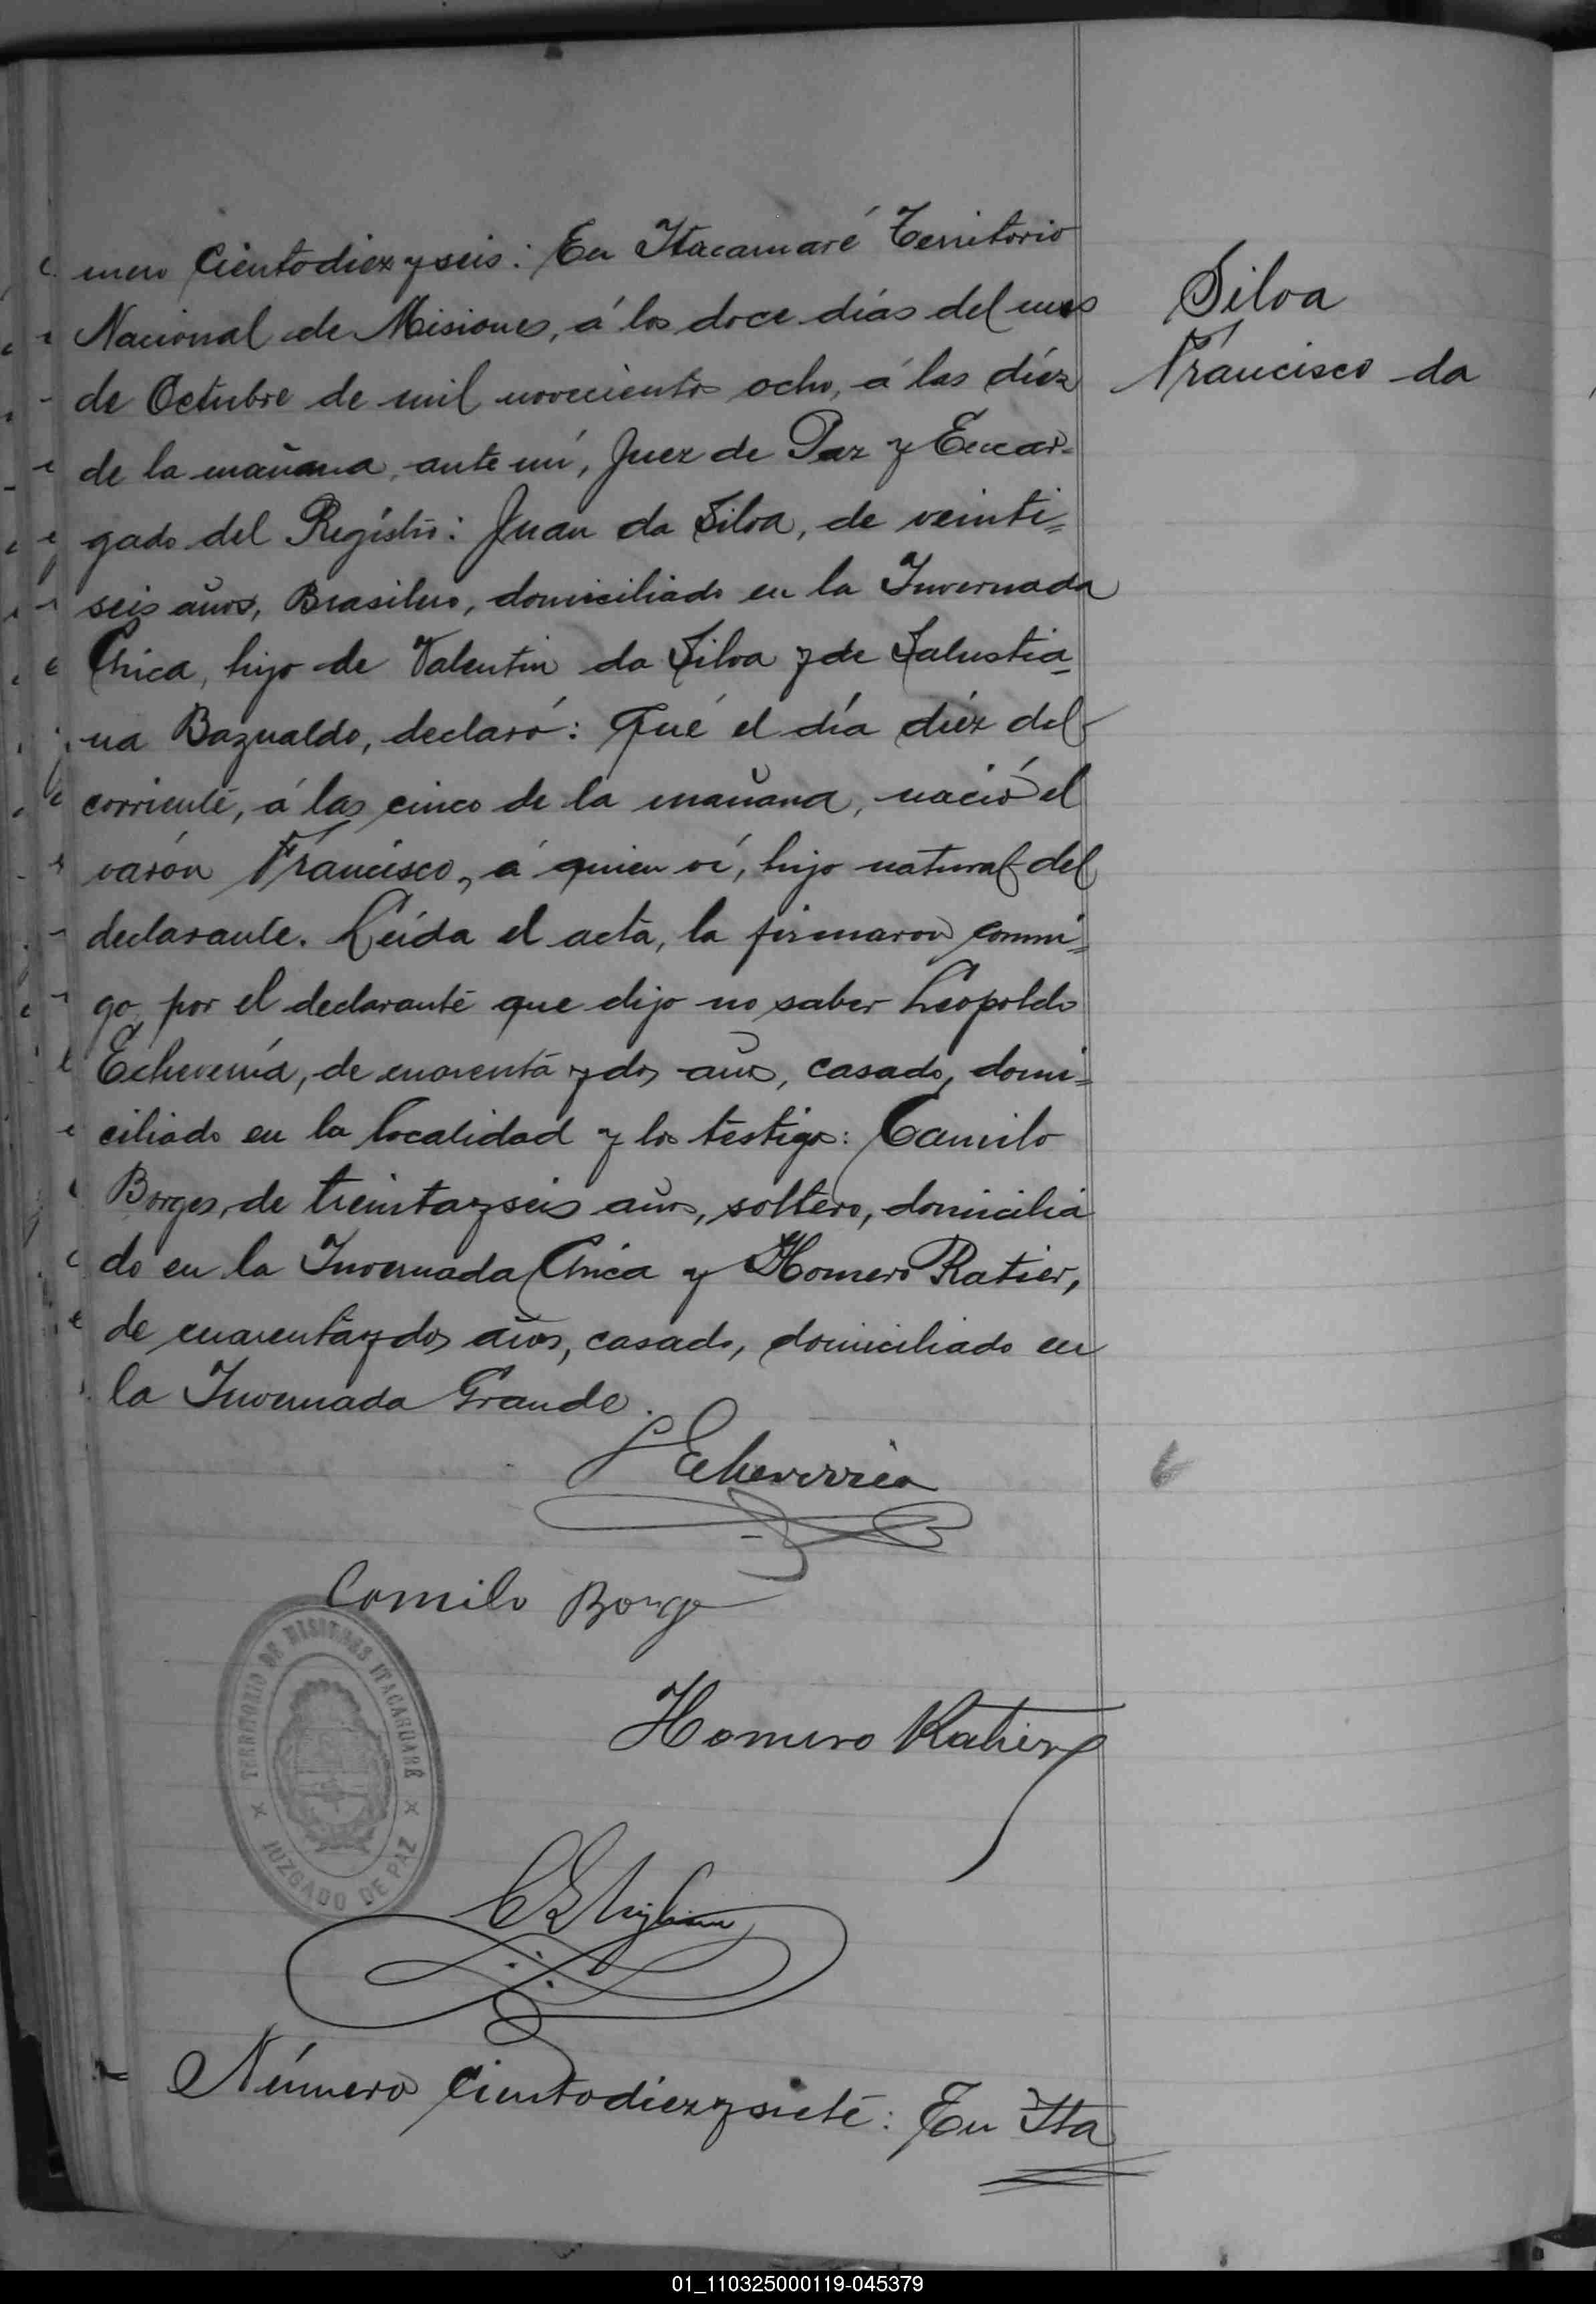 mero Cientodiez y seis: En Itacaruaré Territorio
Nacional de Misiones, á los doce días del mes
de Octubre de mil novecientos ocho, á las diéz
de la mañana, ante mí, Juez de Paz y Encar=
gado del Registro: Juan da Silva, de veinti=
seis años, Brasilero, domiciliado en la Invernada
Chica, hijo de Valentin da Silva y de Salustia=
na Bazualdo, declaró: Qué el día diéz del
corriente, á las cinco de la mañana, nació el
varón Francisco, á quien ví, hijo natural del
declarante. Leída el acta, la firmaron conmi=
go, por el declarante que dijo no saber Leopoldo
Echeverría, de cuarenta y dos años, casado, domi=
ciliado en la localidad y los testigos: Camilo
Borges, de treinta y seis años, soltero, domicilia
do en la Invernada Chica y Homero Ratier,
de cuarenta y dos años, casado, domiciliado en
la Invernada Grande.
L Echeverria
Camilo Borge
Homero Ratier
TERRITORIO DE MISIONES ITACARUARÉ
JUZGADO DE PAZ
Número Cientodiez y siete: En Ita
Silva
Francisco da
01_110325000119-045379